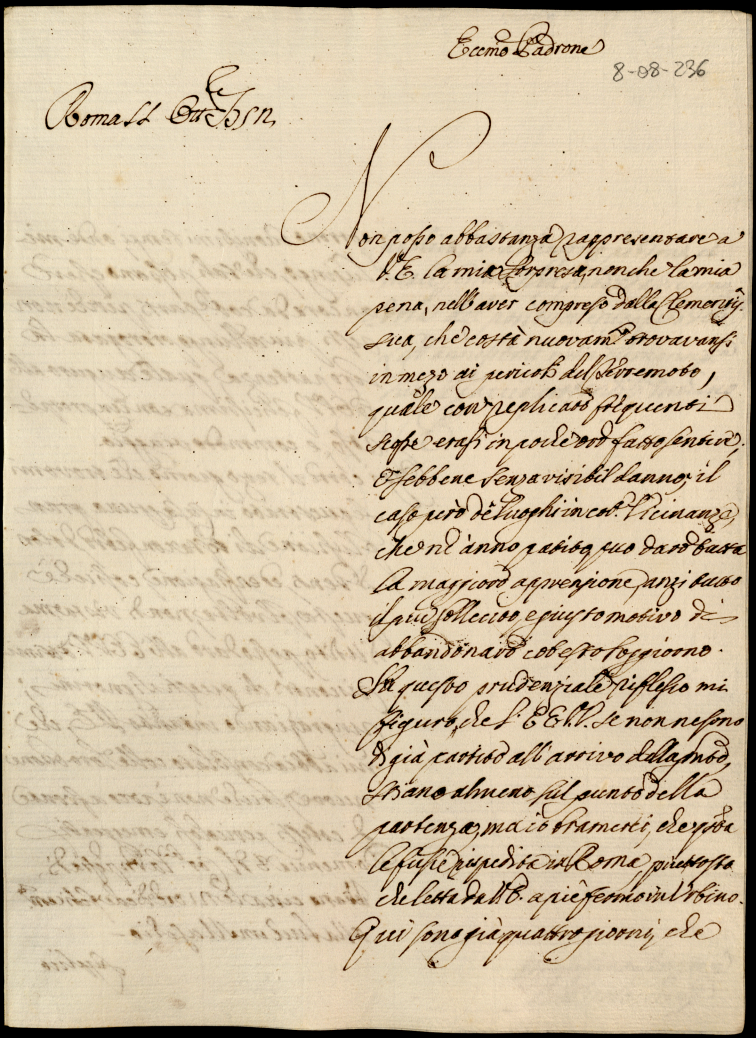 Eccmo Padrone
8-08-236
Roma 11
Non posso abbastanza rappresentare a
V. E. la mia sorpresa, nonche la mia
pena, nell'aver compreso dalla
sua, che costà nuovam.te trovavansi
in mezo ai pericoli del Terremoto,
quale con replicate frequenti
scosse erasi in poche ore fatto sentire;
E sebbene senza visibil danno, il
caso però de Luoghi in cot.a Vicinanza,
che n'anno patito, può dare tutta
la maggiore apprensione, anzi tutto
il più sollecito, e giusto motivo di
abbandonare cotesto soggiorno.
Su questo prudenziale riflesso mi
figuro, che l'EE. VV. se non ne sono
di già partite all'arrivo della
siano almeno sul punto della
partenza, ma io bramerei, che
le fusse rispedita in Roma, piuttosto
che letta dall' a piè fermo in Urbino.
Qui sono già quattro giorni, che